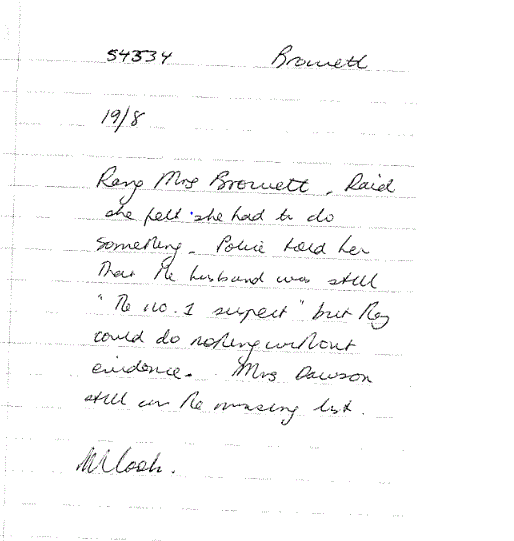 54334 Browett
19/8
Rang Mrs Browett. Said
she felt she had to do
something. Police told her
that the husband was still
"the no. 1 suspect" but they
could do nothing without
evidence. Mrs Dawson
still on the missing list.